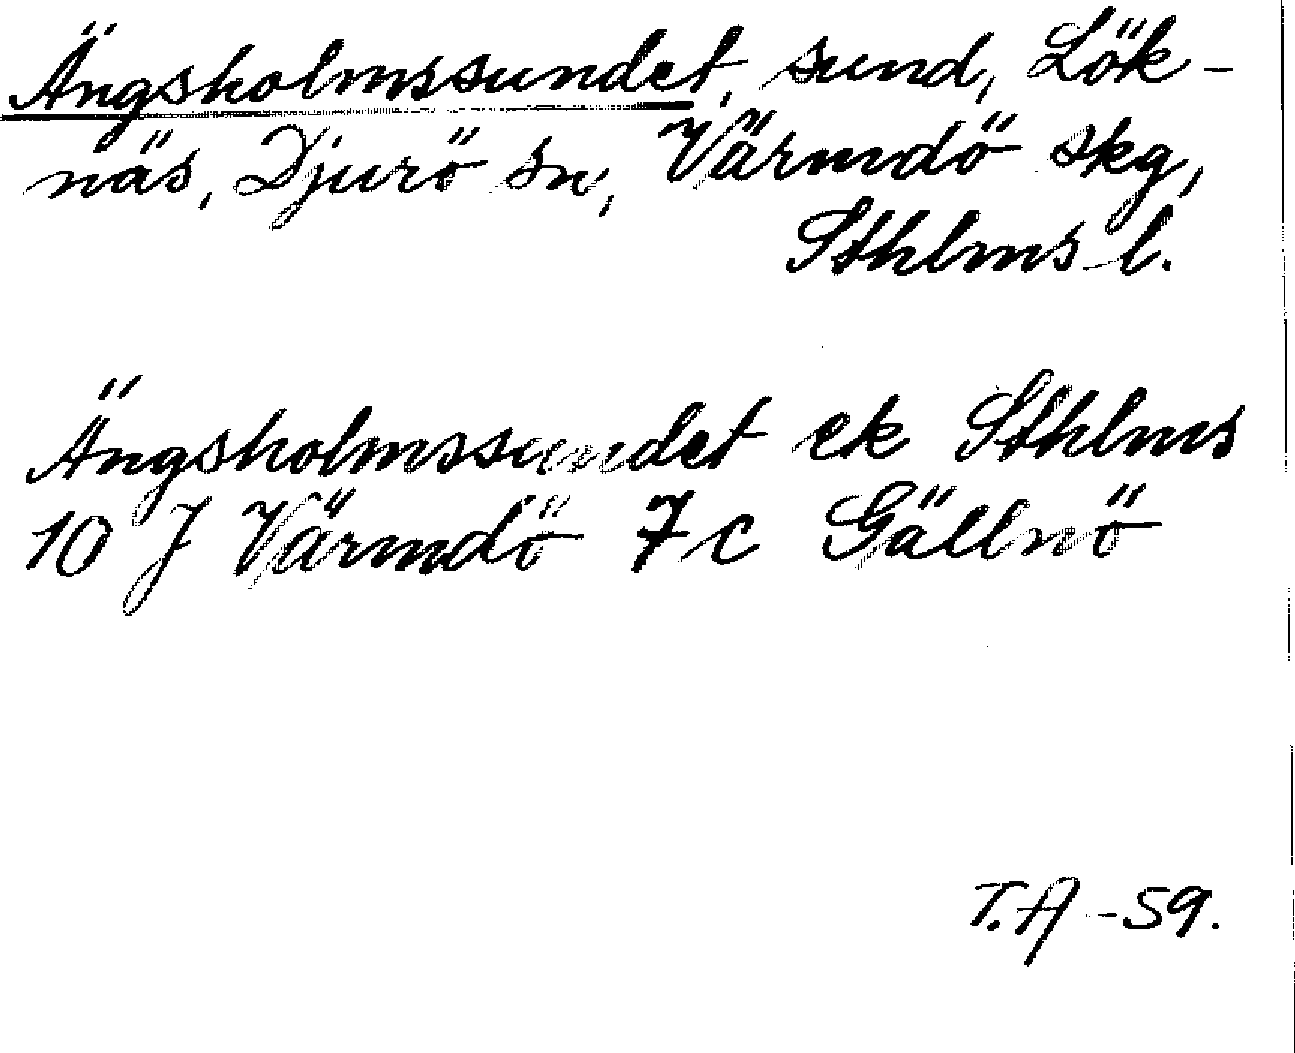 Ängsholmssundet, sund, Lök-
näs, Djurö sn, Värmdö skg,
Sthlms l.
Ängsholmssundet ek Sthlms
10 J Värmdö 7c Gällnö
T.A -59.